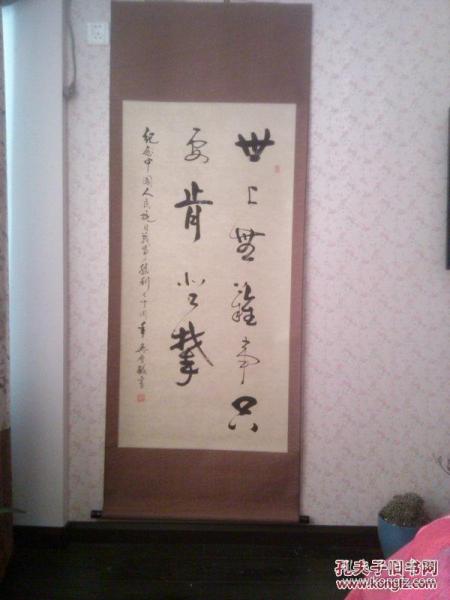 世上無難事只
要肯登攀
纪念中国人民抗日战争胜利七十周年
孔夫子旧书网
www.kongfz.com